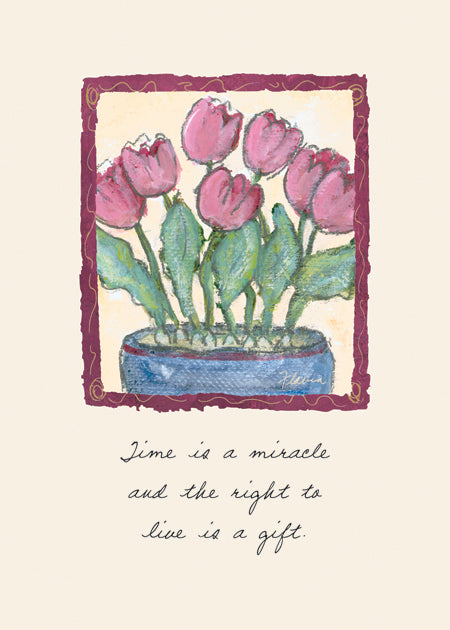 Flavia
Time is a miracle
and the right to
live is a gift.